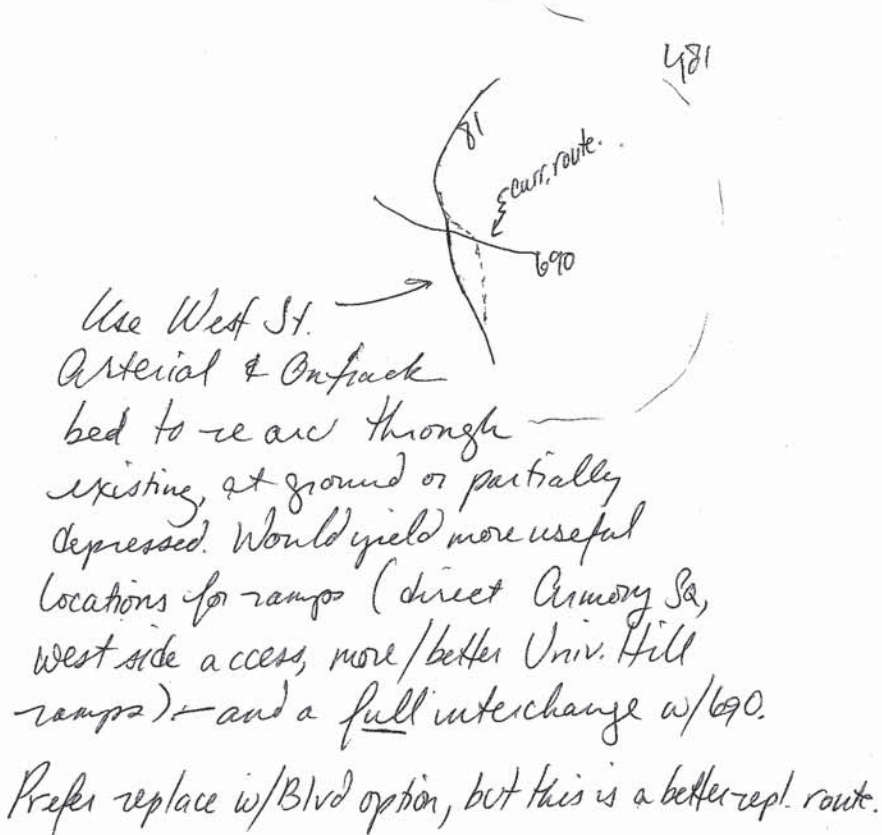 481
81
curr. route.
690
Use West St.
Arterial & Ontrack
bed to re arc through
existing, at ground or partially
depressed. Would yield more useful
locations for ramps (direct Armory Sq,
west side access, more/better Univ. Hill
ramps) — and a full interchange w/690.
Prefer replace w/Blvd option, but this is a better repl. route.